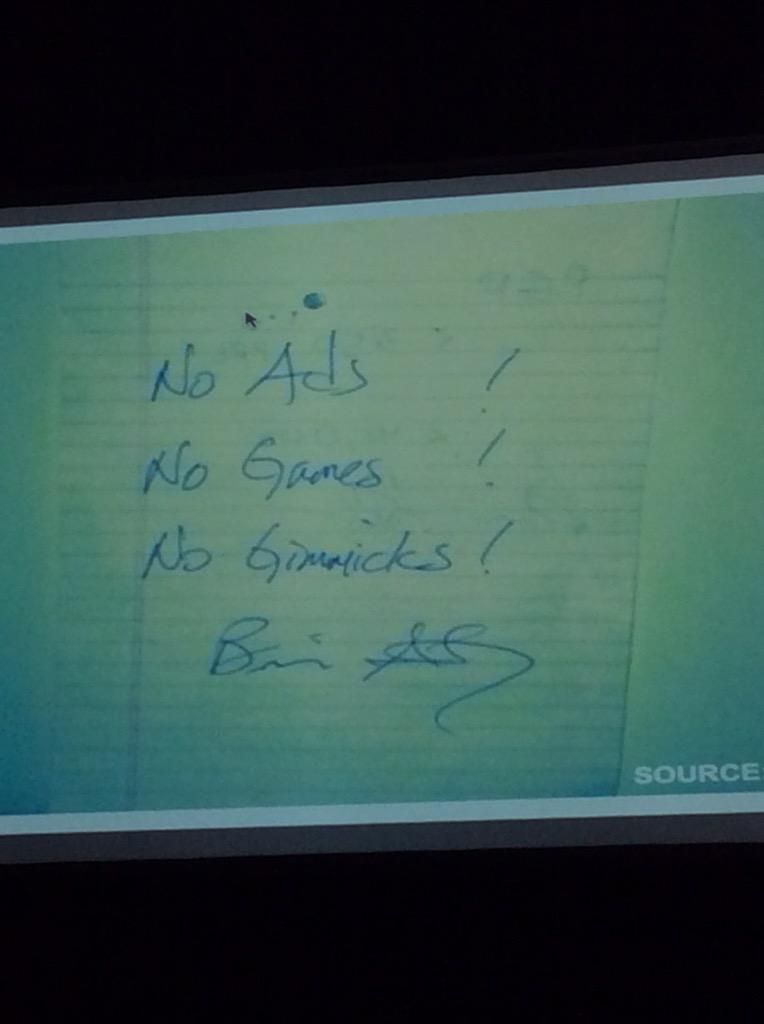 No Ads !
No Games !
No Gimmicks !
SOURCE